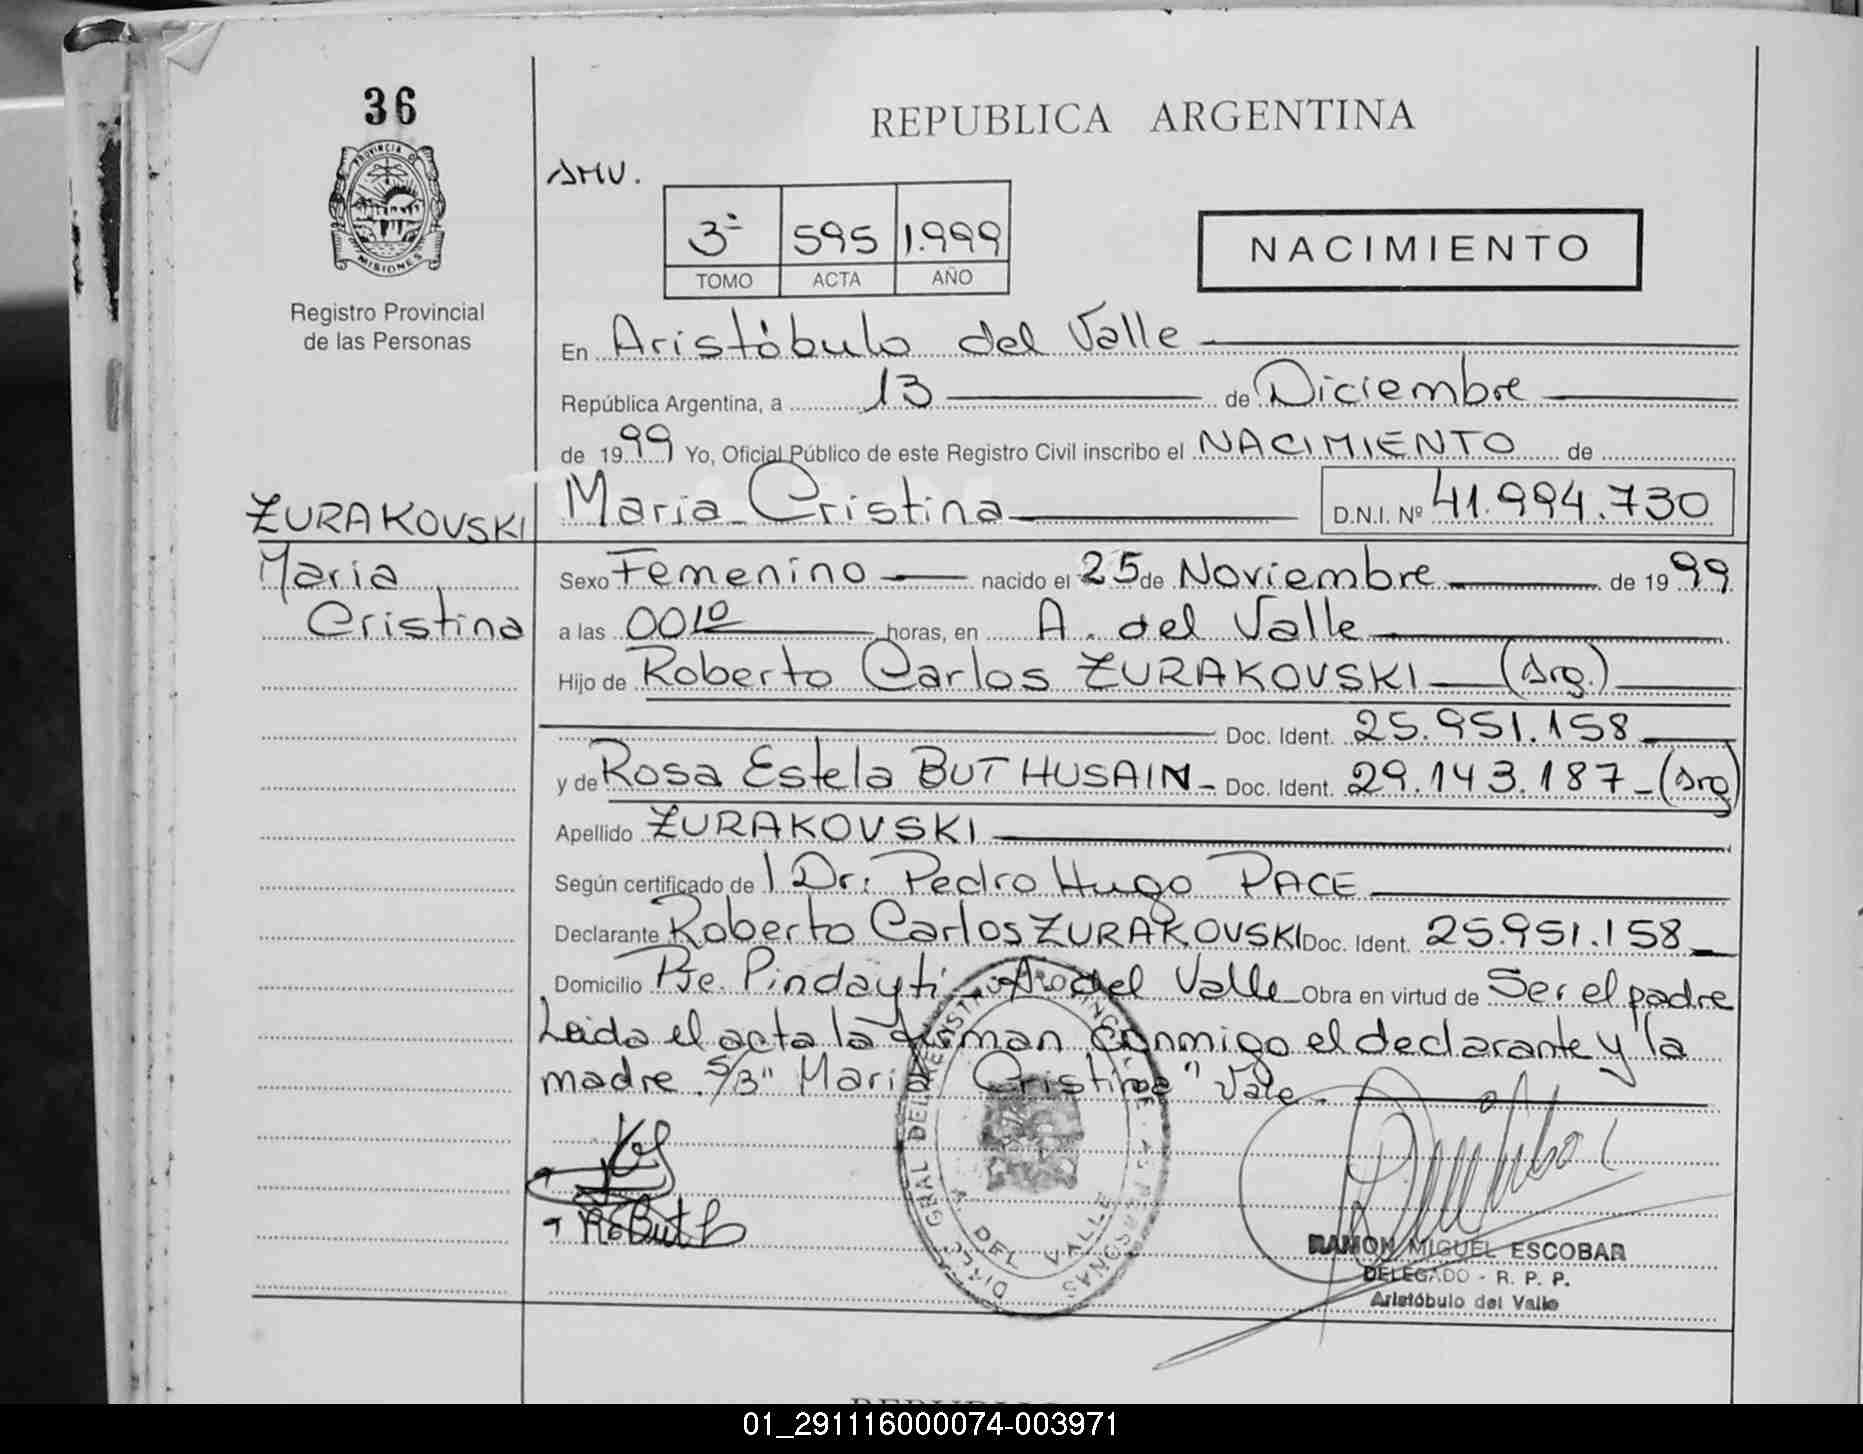 36
REPUBLICA ARGENTINA
PROVINCIA DE
MISIONES
Registro Provincial
de las Personas
SMV.
3º 595 1.999
TOMO ACTA AÑO
NACIMIENTO
En Aristóbulo del Valle
República Argentina, a 13 de Diciembre
de 1999 Yo, Oficial Público de este Registro Civil inscribo el NACIMIENTO de
ZURAKOVSKI
Maria Cristina D.N.I. Nº 41.994.730
Maria
Cristina
Sexo Femenino nacido el 25 de Noviembre de 1999
a las 00 10 horas, en A. del Valle
Hijo de Roberto Carlos ZURAKOVSKI (Arg.)
Doc. Ident. 25.951.158
y de Rosa Estela BUTHUSAIN - Doc. Ident. 29.143.187 - (Arg)
Apellido ZURAKOVSKI
Según certificado de l Dr. Pedro Hugo PACE
Declarante Roberto Carlos ZURAKOVSKI Doc. Ident. 25.951.158
Domicilio Pje. Pindayti - Aº del Valle Obra en virtud de Ser el padre
Leida el acta la firman conmigo el declarante y la
madre. S/3" Maria Cristina" Vale.
DIREC. GRAL DEL REGISTRO PROVINCIAL DE LAS PERSONAS
A. DEL VALLE
RAMON MIGUEL ESCOBAR
DELEGADO - R. P. P.
Aristóbulo del Valle
01_291116000074-003971